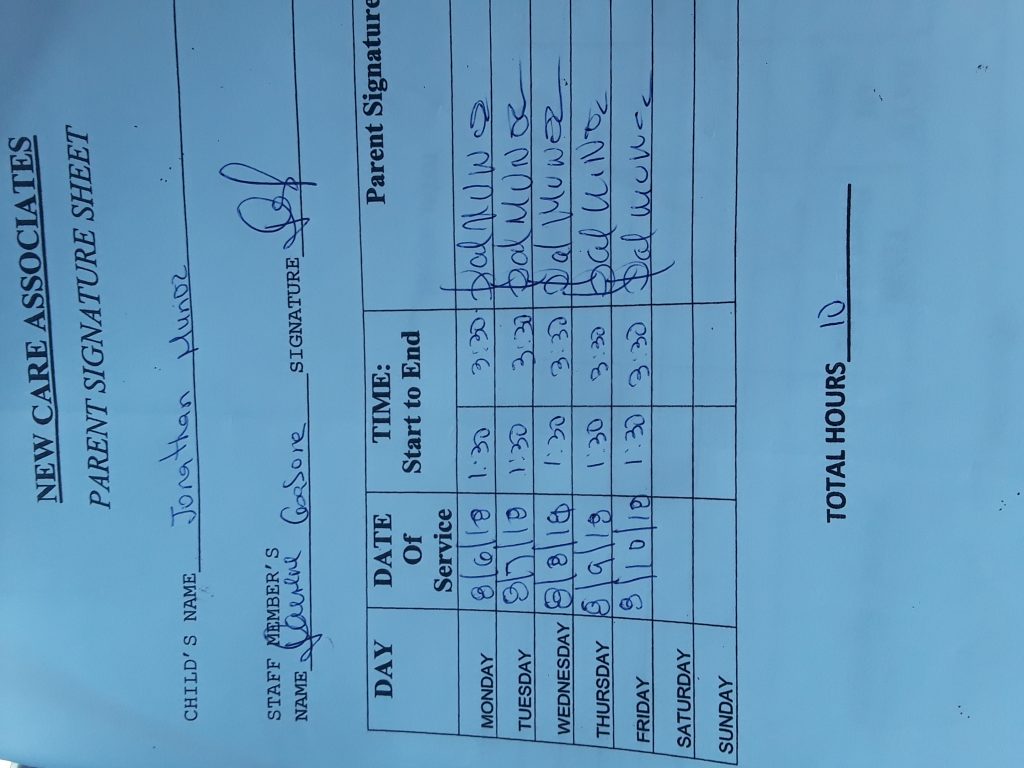 NEW CARE ASSOCIATES
PARENT SIGNATURE SHEET
CHILD'S NAME Jonathan Munoz
STAFF MEMBER'S
NAME SIGNATURE
DAY DATE Of Service TIME: Start to End Parent Signature
MONDAY 8/6/18 1:30 3:30
TUESDAY 8/7/18 1:30 3:30
WEDNESDAY 8/8/18 1:30 3:30
THURSDAY 8/9/18 1:30 3:30
FRIDAY 8/10/18 1:30 3:30
SATURDAY
SUNDAY
TOTAL HOURS 10